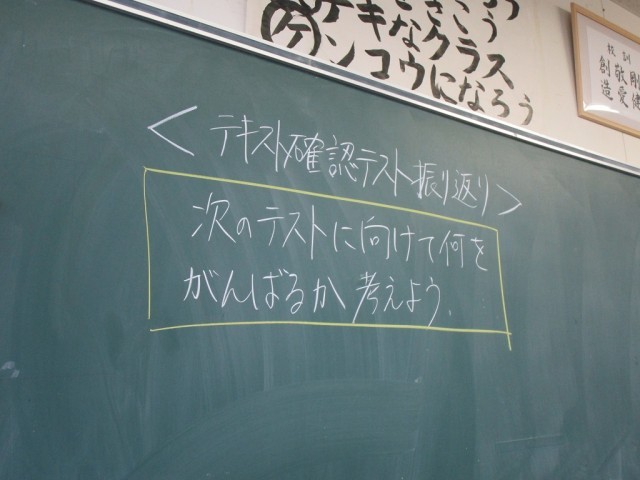 なクラス
ンコウになろう
校訓
剛健
敬愛
創造
<テキスト確認テスト振り返り>
次のテストに向けて何を
がんばるか考えよう.